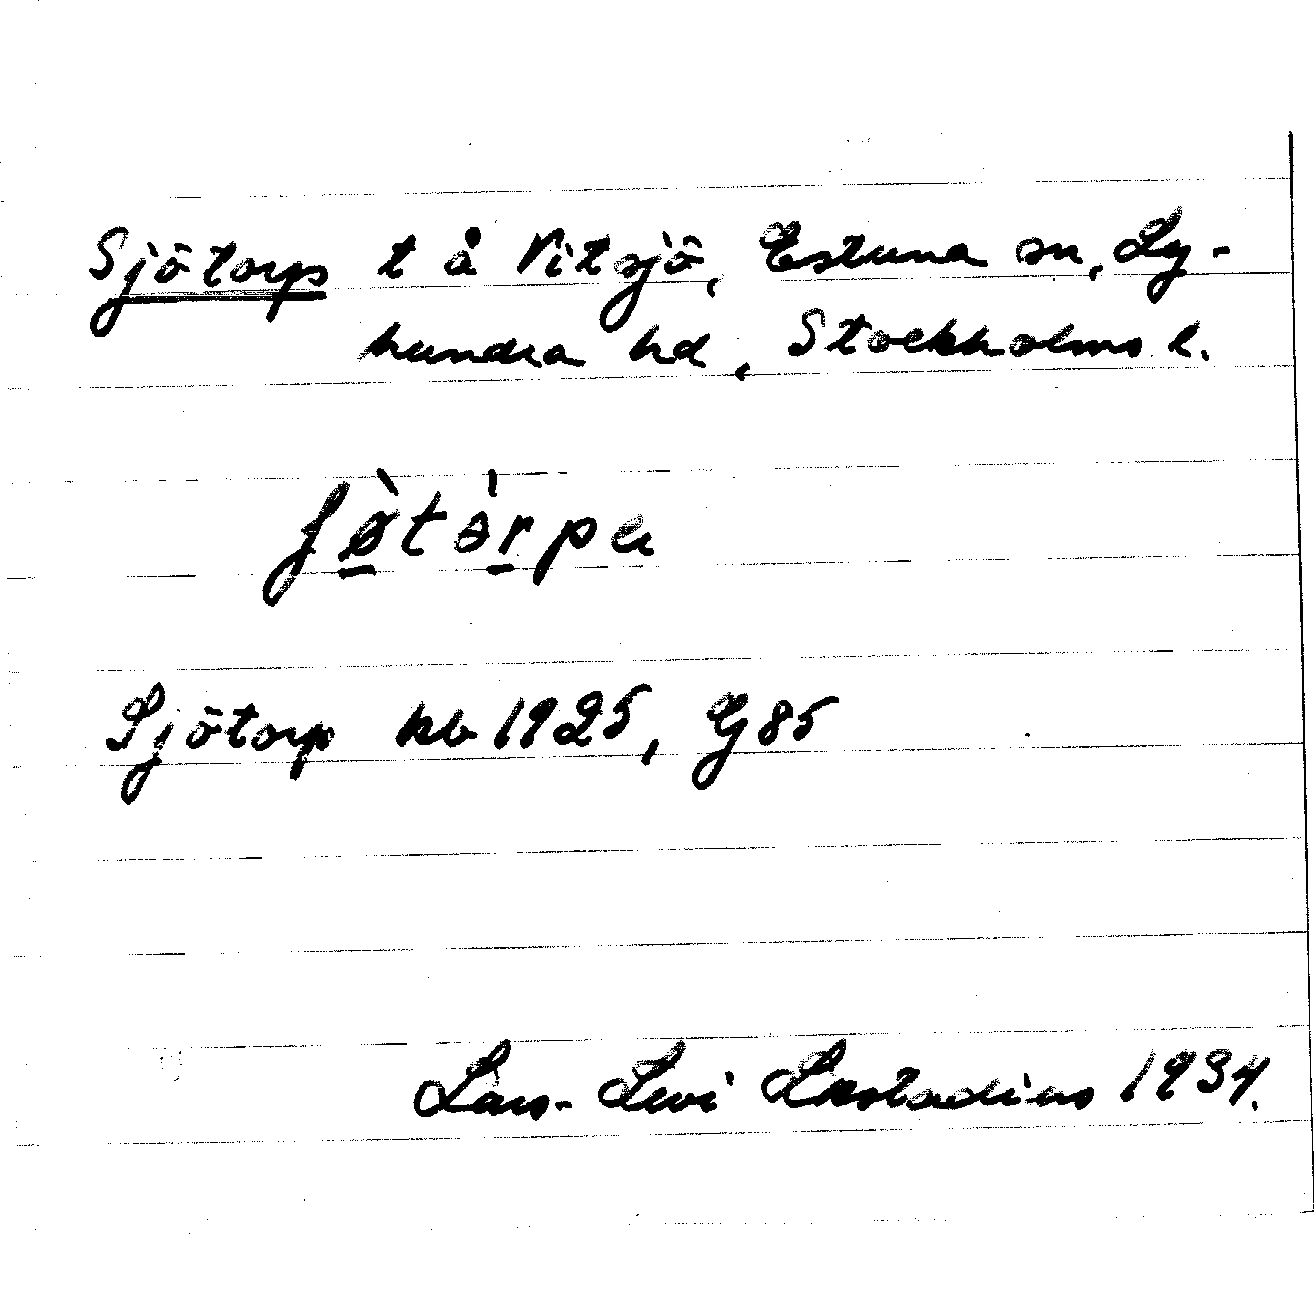 Sjötorp t å Vitsjö, Estuna sn, Ly-
hundra hd, Stockholms l.
ʃø̀tòrpa
Sjötorp kb 1925, G85
Lars-Levi Læstadius 1934.